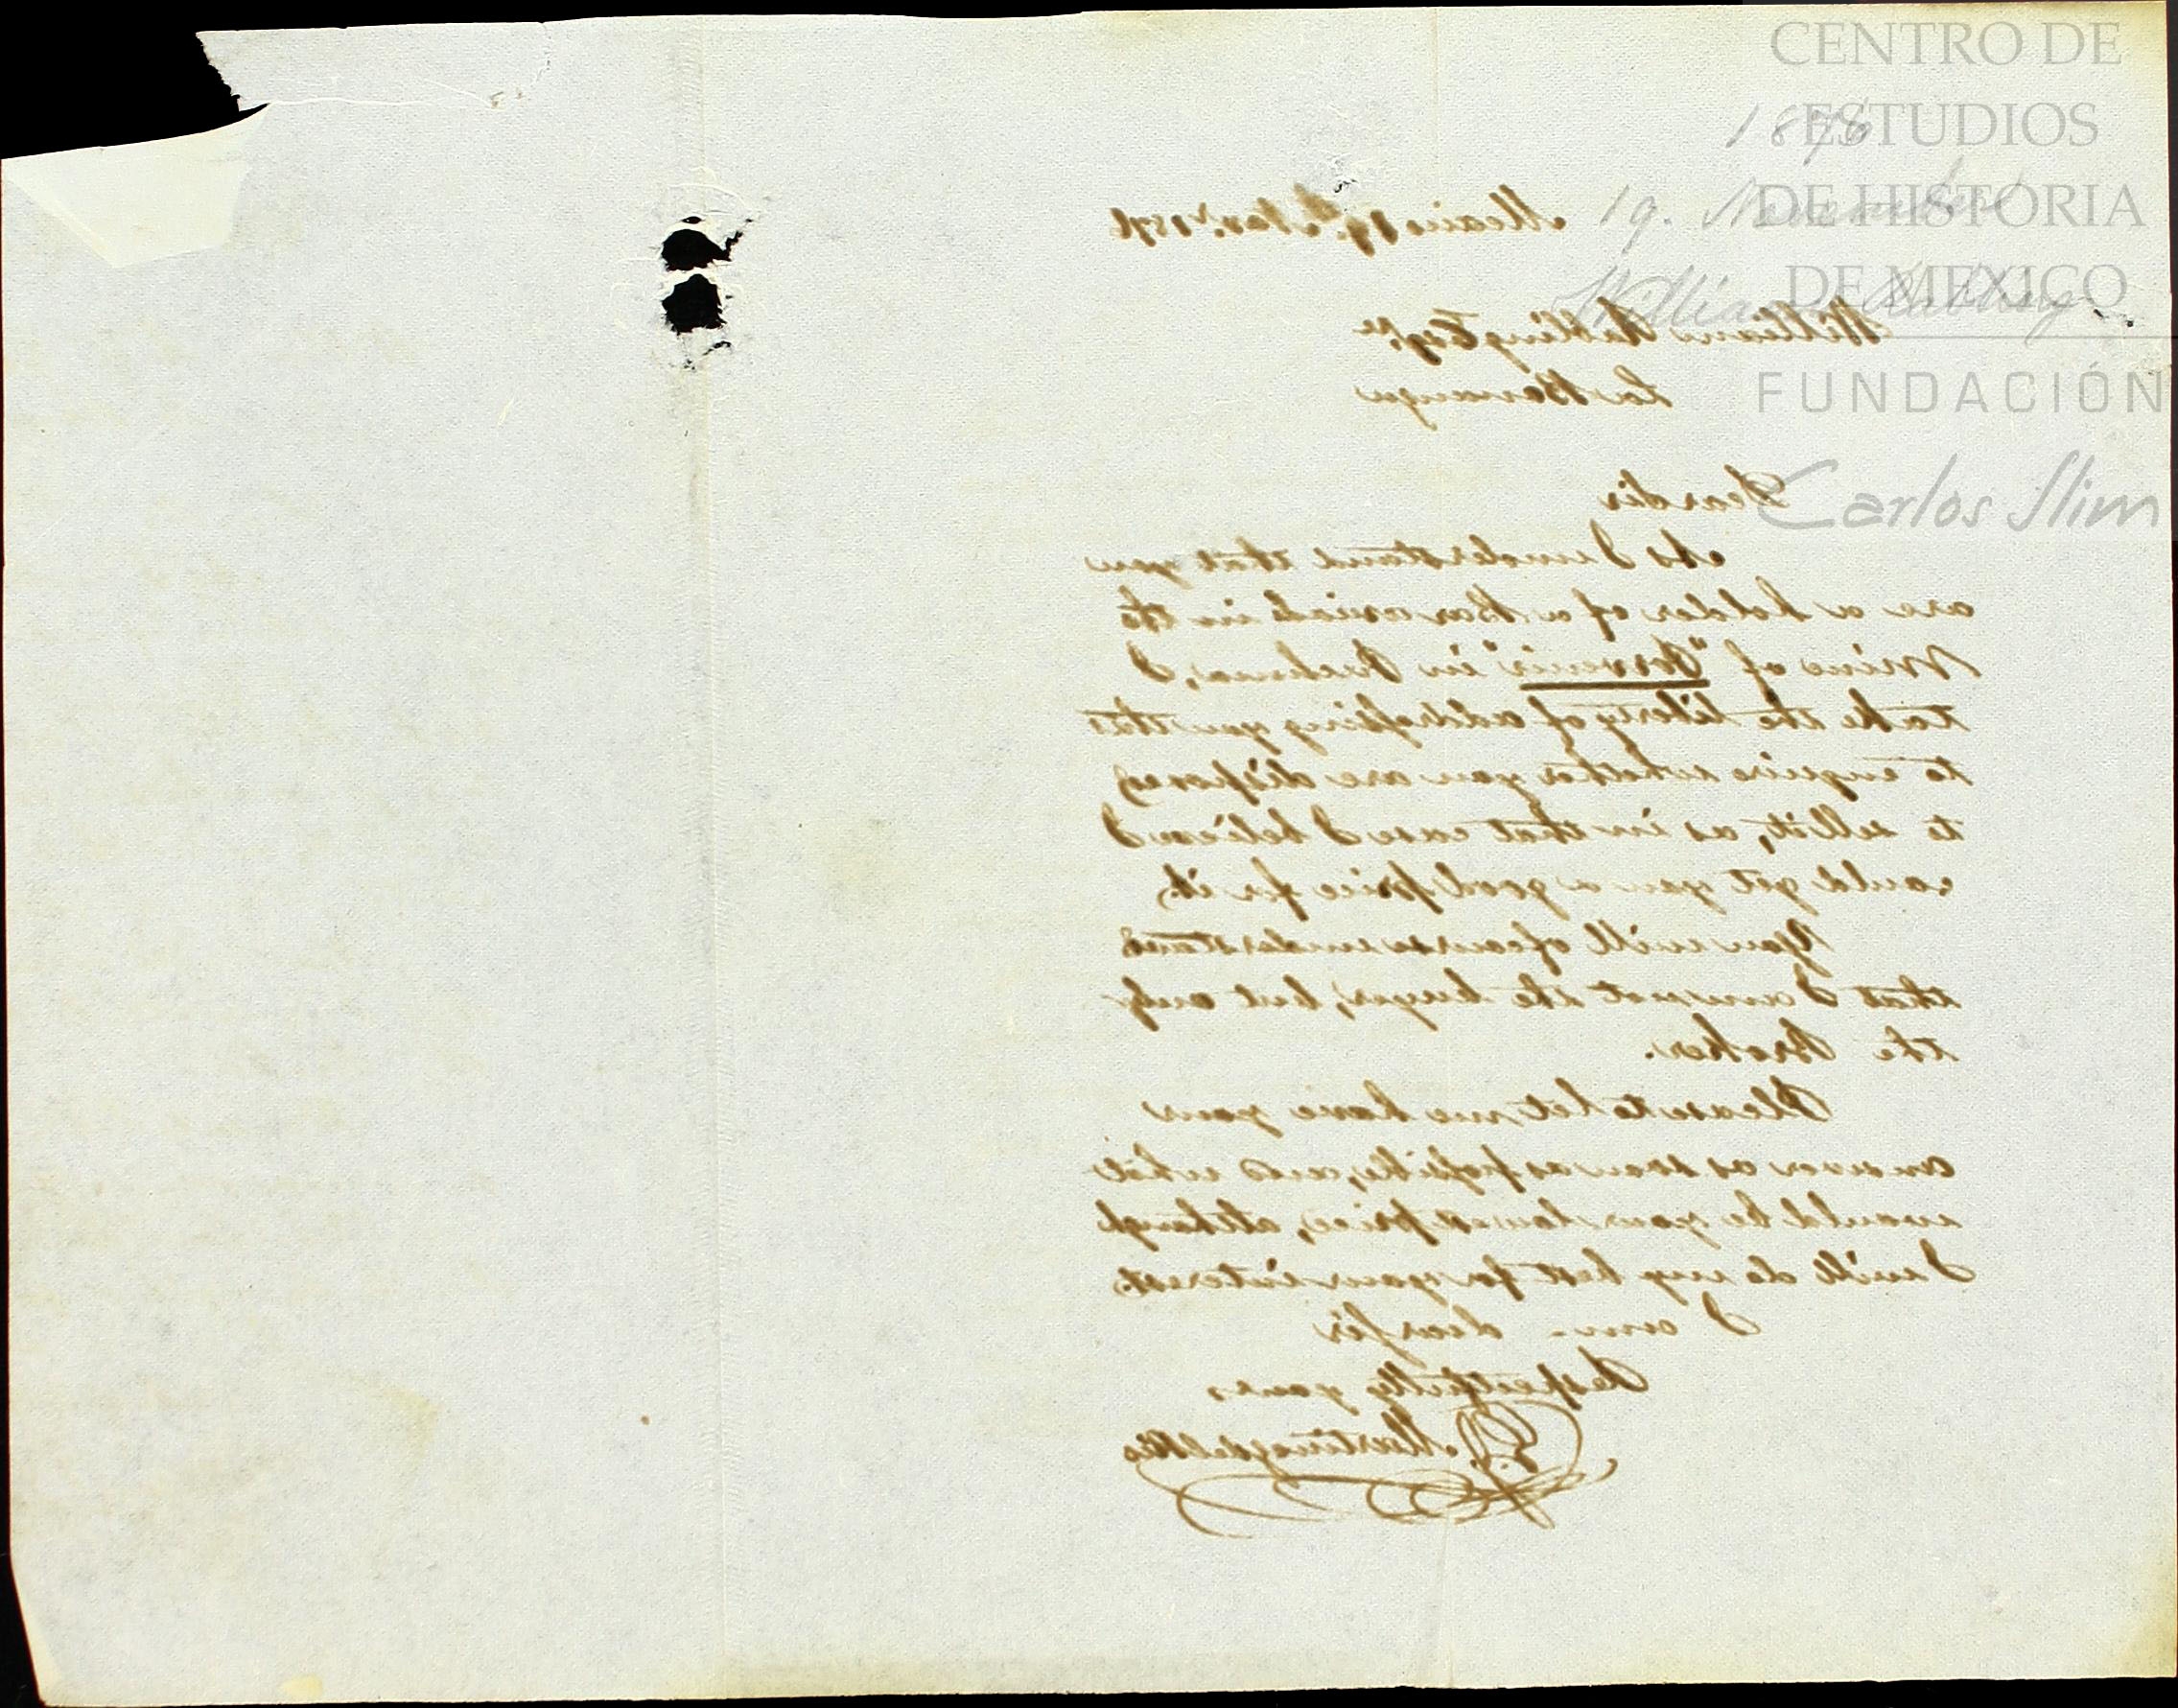 CENTRO DE
ESTUDIOS
DE HISTORIA
DE MEXICO
FUNDACIÓN
Carlos Slim
1876
19. Noviembre
William Rabling
Mexico 19th Novr. 1876
William Rabling Esqre
La Barranca
Dear Sir
As I understand that you
are a holder of a Bar in the
Mine of "Porvenir" in Pachuca, I
take the liberty of addressing you this
to enquire whether you are disposed
to sell it, as in that case I believe I
could get you a good price for it.
You will of course understand
that I am not the buyer, but only
the Broker.
Please to let me have your
answer as soon as possible, and what
would be your lowest price, although
I will do my best for your interest.
I am - dear Sir
Respectfully yours,
Martinez del Rio